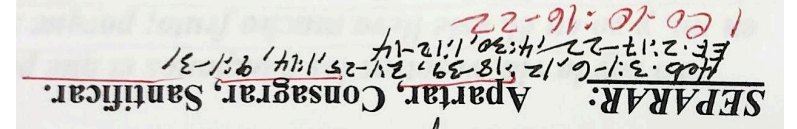 SEPARAR: Apartar, Consagrar, Santificar.
Heb. 3:1-6, 12:18-39, 24-25, 1:14, 9:1-31
EF. 2:17-22, 4:30, 1:12-14
1 Co -10:16-22